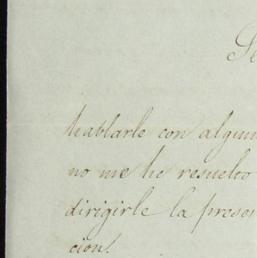 Se
hablarle con algun
no me he resuelto
dirigirle la prese
cion!